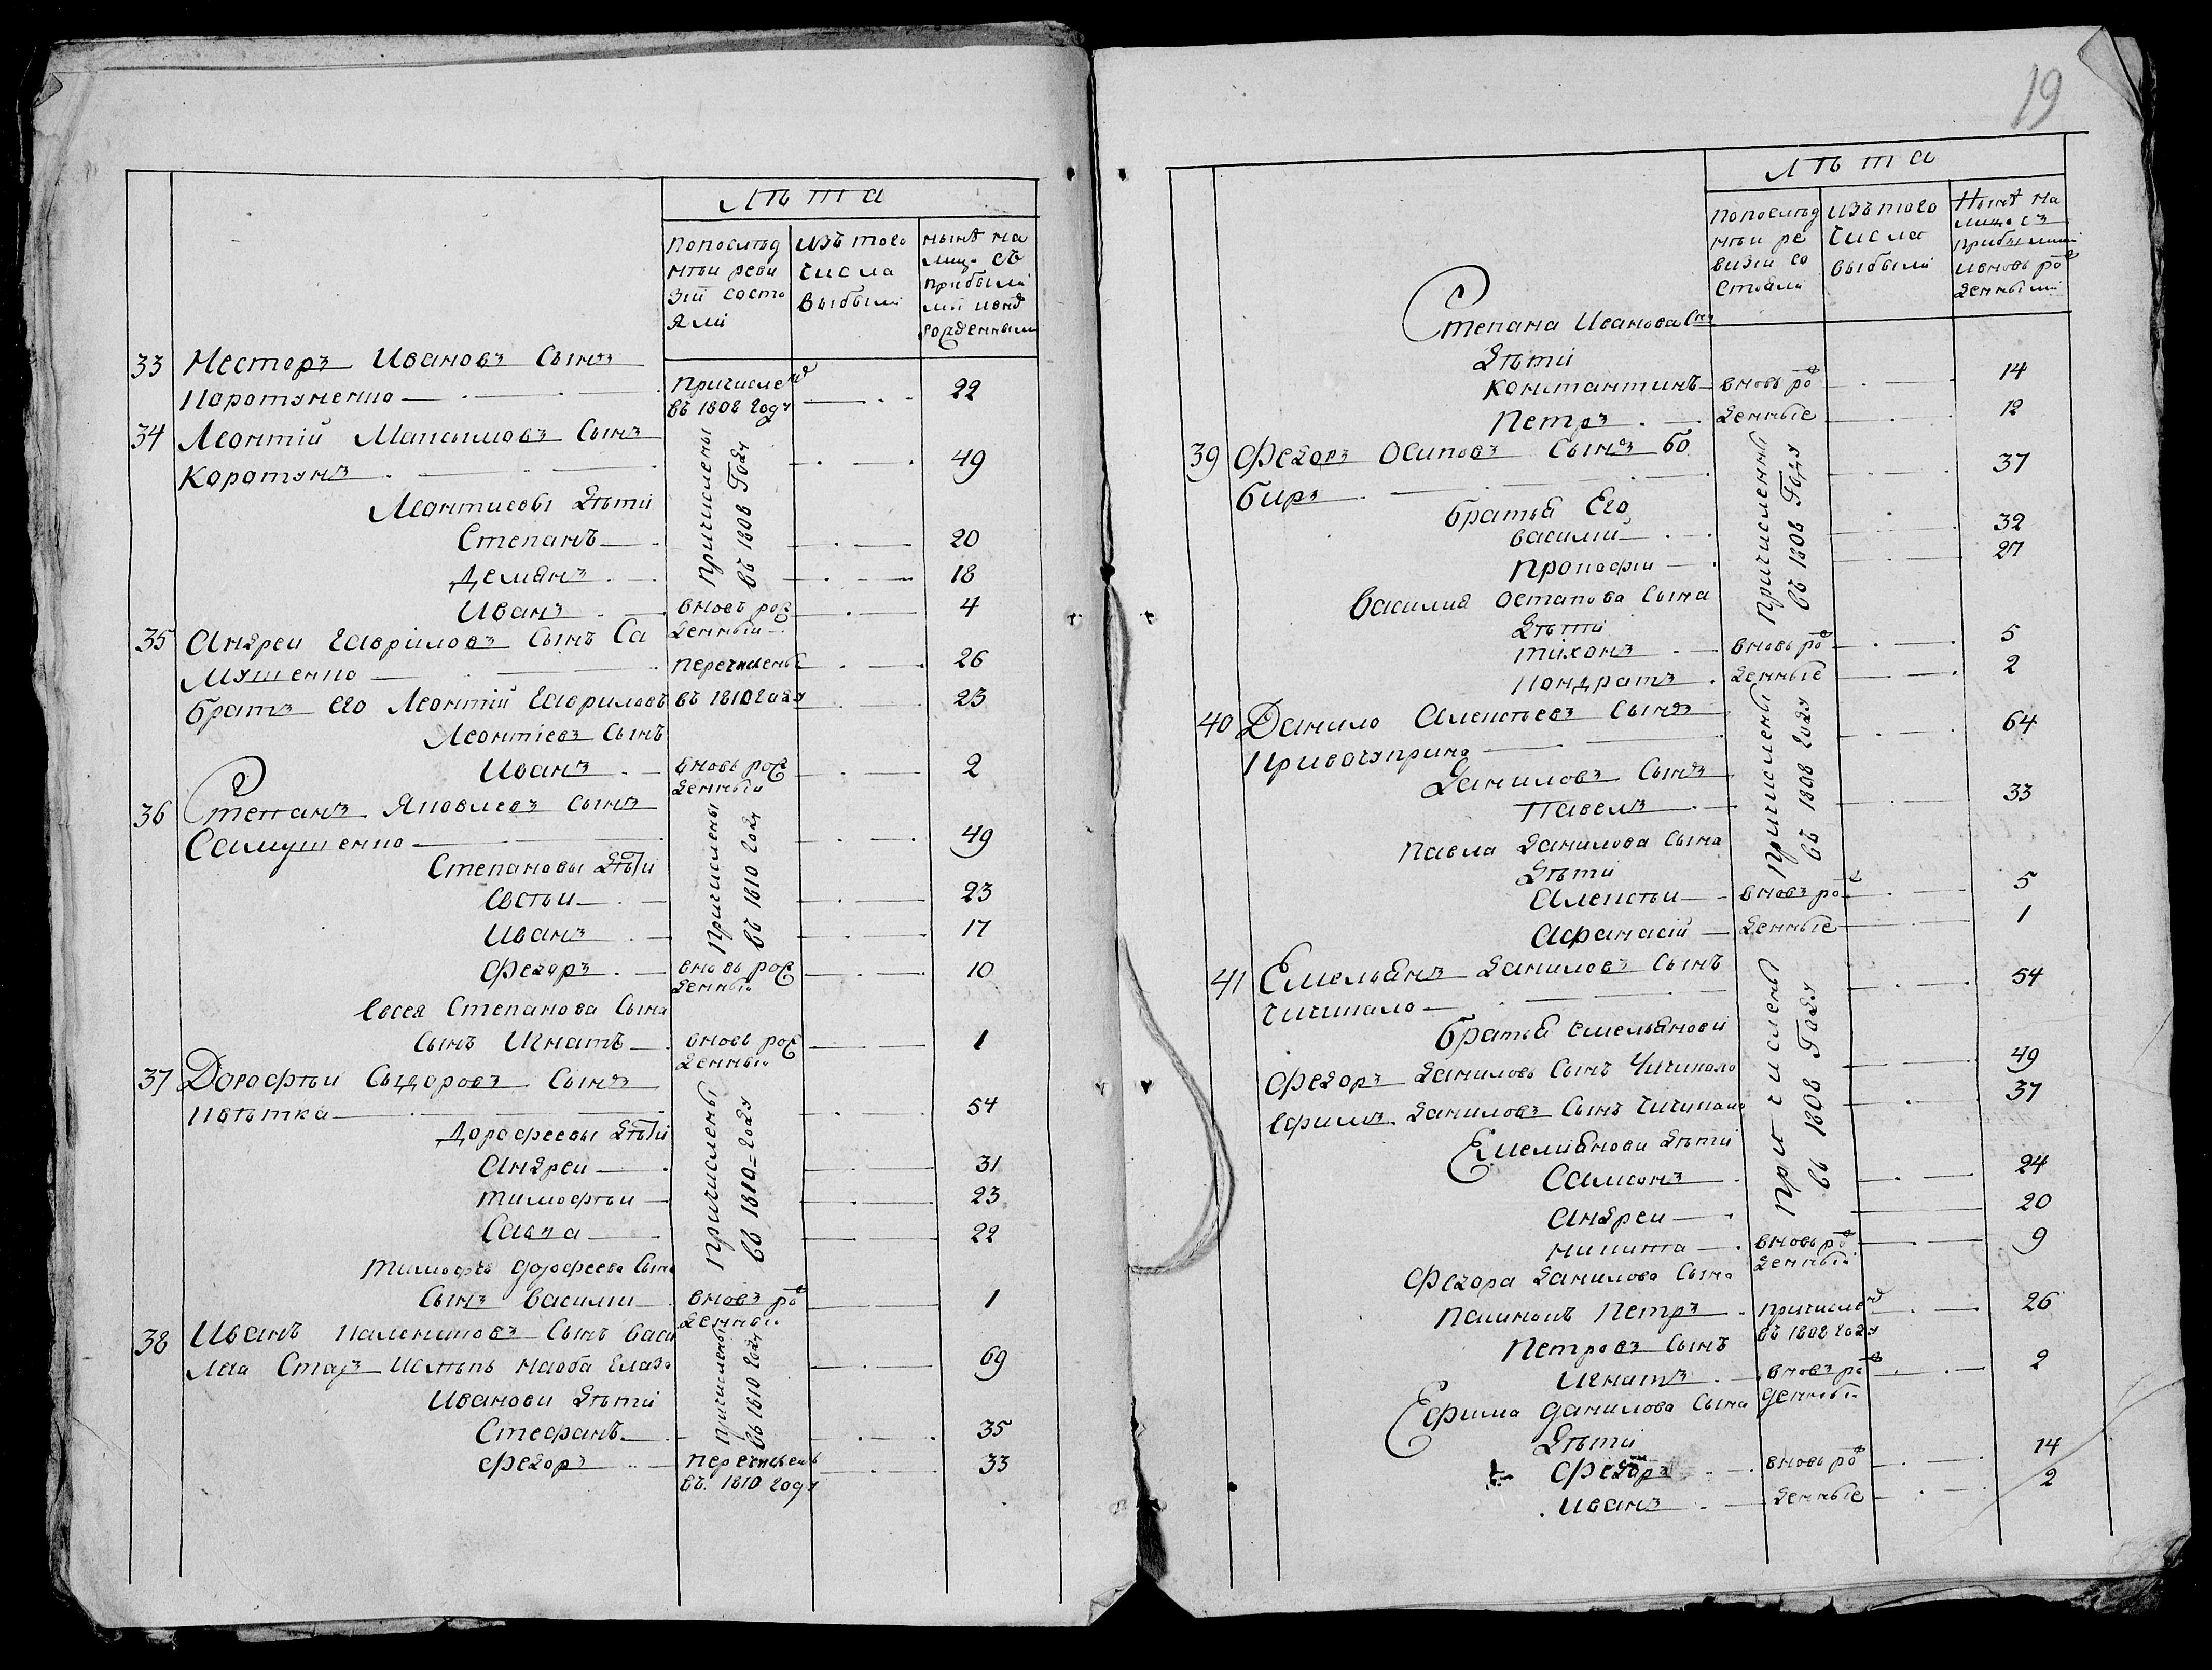 Лѣта
По последней ревизіи состояли
изъ того числа выбыли
нынѣ на лицо съ прибылими и вновь рожденными
33 Нестеръ Ивановъ Сынъ
Коротченко — причисленъ въ 1808 году — 22
34 Леонтій Максимовъ Сынъ
Коротунъ — причислены въ 1808 Году — 49
Леонтиевы дѣти
Степанъ — 20
Демянъ — 18
Иванъ — вновь рожденный — 4
35 Андреи Гаврiловъ Сынъ Са
мушенко — перечислены — 26
братъ его Леонтій Гавриловъ въ 1810 году — 23
Леонтіевъ Сынъ
Иванъ — вновь рожденный — 2
36 Степанъ Яковлевъ Сынъ
Самушенко — причислены въ 1810 году — 49
Степановы дѣти
Евсѣи — 23
Иванъ — 17
Федоръ — вновь рожденный — 10
Евсея Степанова Сына
Сынъ Игнатъ — вновь рожденный — 1
37 Дорофѣи Сыдоровъ Сынъ
Квѣтка — причислены въ 1810 = году — 54
Дорофеевы дѣти
Андреи — 31
Тимофѣи — 23
Савка — 22
Тимофѣя дорофеева Сына
Сынъ василии — вновъ рожденный — 1
38 Иванъ Сынъ
причислены въ 1810 году — 69
Иванови дѣти
Стефанъ — 35
Федоръ — перечисленъ въ 1810 году — 33
19
Лѣта
По последней ревизіи состояли
изъ того числа выбыли
Нынѣ на лицо съ прибылими и вновь рожденными
Степана Иванова Сына
дѣти
Константинъ — вновь ро — 14
Петръ — жденные — 12
39 Федоръ Осиповъ Сынъ бо
биръ — причисленны въ 1808 Году — 37
братья Его
василий — 32
Прокофіи — 27
василия Остапова Сына
дѣти
тихонъ — вновь ро — 5
Кондратъ — жденные — 2
40 Данило Алексѣевъ Сынъ
Кривочуприна — причислены въ 1808 году — 64
даниловъ Сынъ
Павелъ — 33
Павла данилова Сына
дѣти
Алексѣи — вновъ ро — 5
Афанасій — жденные — 1
41 Емельянъ даниловъ Сынъ
Чичикало — причислены въ 1808 Году — 54
братья емельянови
Федоръ даниловъ Сынъ Чичикало — 49
Ефимъ даниловъ Сынъ чичикало — 37
Емелиянови дѣти
Самсонъ — 24
Андреи — 20
никита — вновь рожденный — 9
Федора данилова Сына
пасинокъ Петръ — причисленъ въ 1808 году — 26
Петровъ Сынъ
Игнатъ — вновъ рожденный — 2
Ефима данилова Сына
дѣти
Федоръ — вновь ро — 14
иванъ — жденные — 2